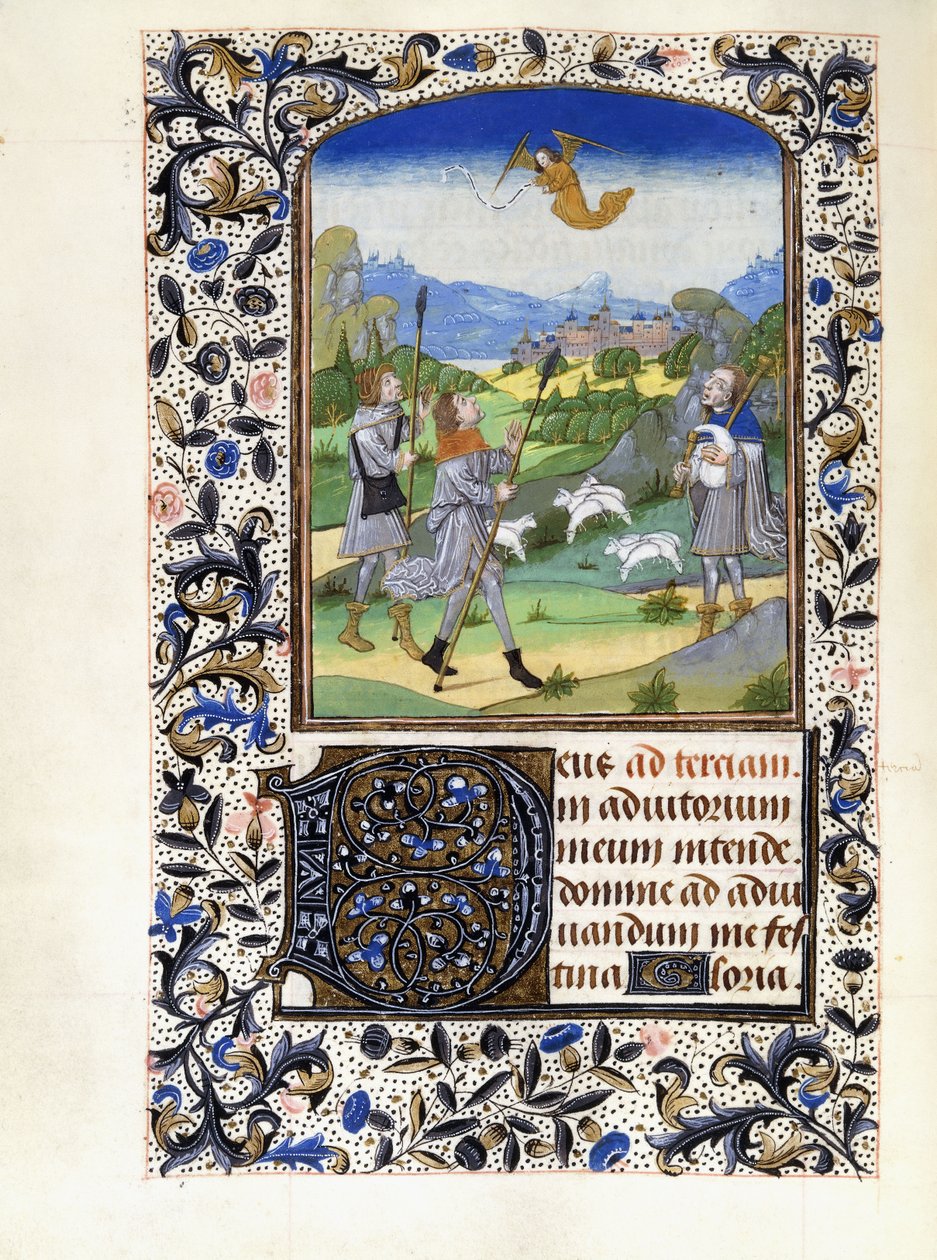 Deus ad terciam.
in adiutorium
meum intende.
domine ad adiu
uandum me fes
tina Gloria.